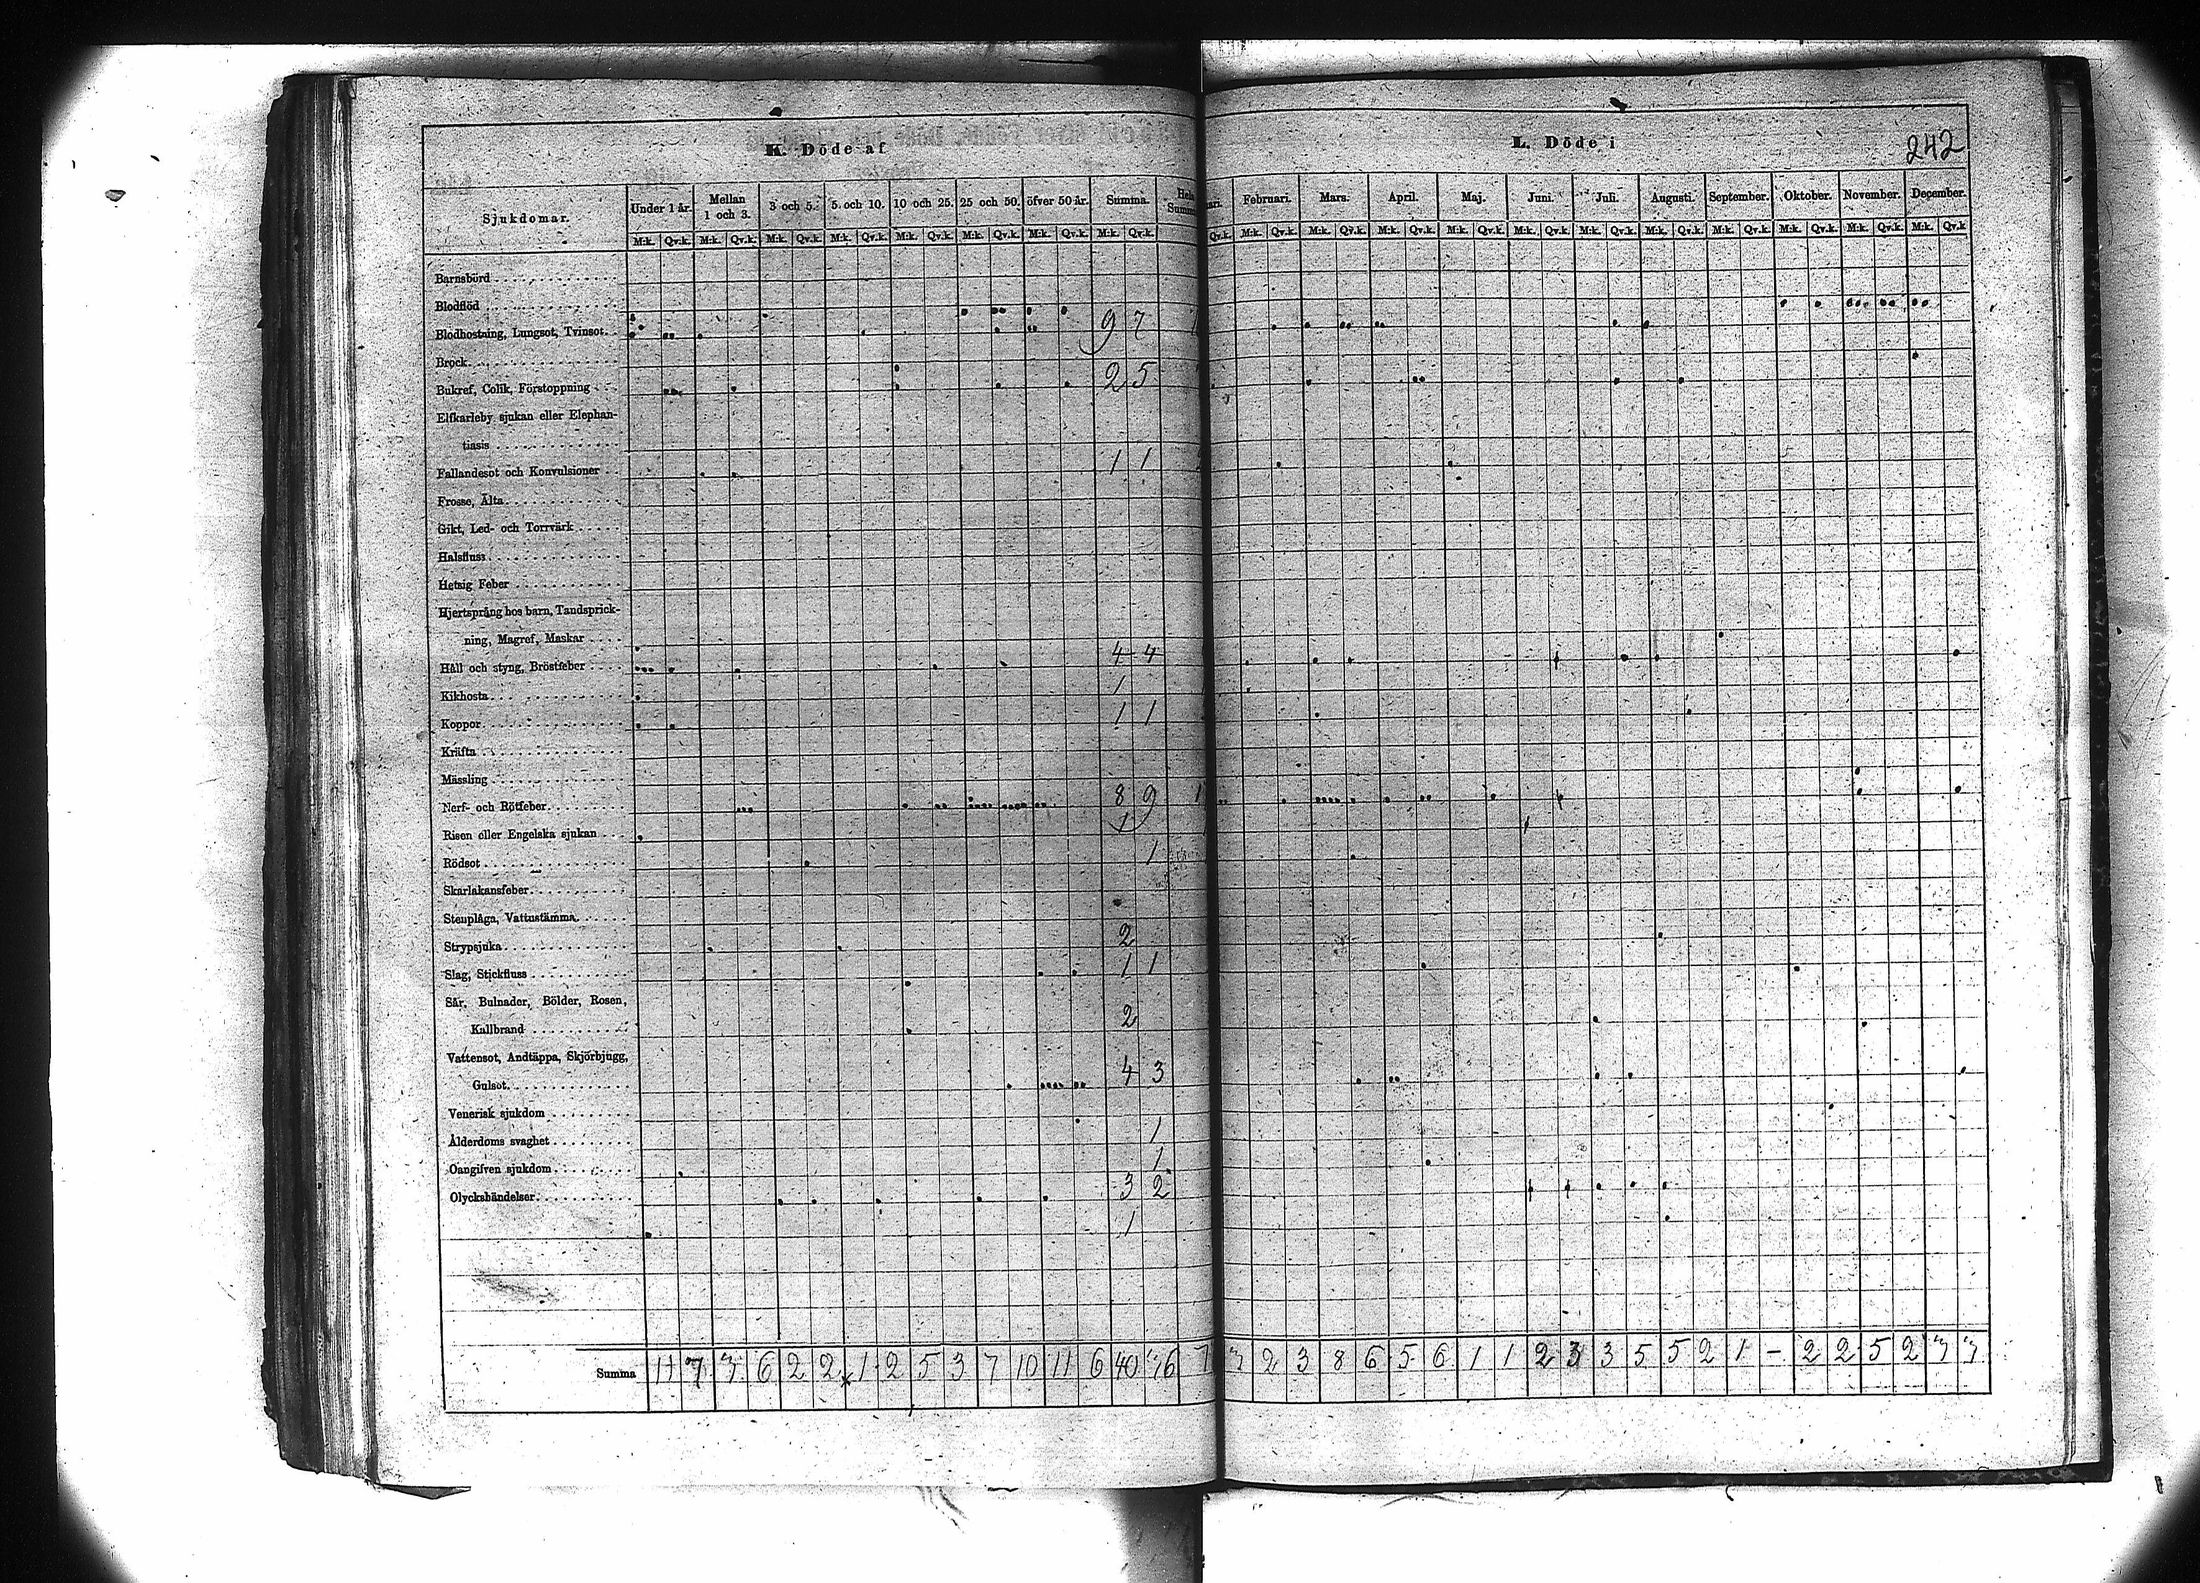 K. Döde af
L. Döde i
242
Sjukdomar.
Under 1 år.
Mellan 1 och 3.
3 och 5.
5 och 10.
10 och 25.
25 och 50.
öfver 50 år.
Summa.
Februari.
Mars.
April.
Maj.
Juni.
Juli.
Augusti.
September.
Oktober.
November.
December.
M:k. Qv.k. M:k. Qv.k. M:k. Qv.k. M:k. Qv.k. M:k. Qv.k. M:k. Qv.k. M:k. Qv.k. M:k. Qv.k.
Qv.k. M:k. Qv.k. M:k. Qv.k. M:k. Qv.k. M:k. Qv.k. M:k. Qv.k. M:k. Qv.k. M:k. Qv.k. M:k. Qv.k. M:k. Qv.k. M:k. Qv.k. M:k. Qv.k
Barnsbörd
Blodflöd
Blodhostning, Lungsot, Tvinsot. 9 7
Bråck
Bukref, Colik, Förstoppning 2 5
Elfkarleby sjukan eller Elephan-
tiasis
Fallandesot och Konvulsioner 1 1
Frosse, Älta
Gikt, Led- och Torrvärk
Halsfluss
Hetsig Feber
Hjertsprång hos barn, Tandsprick-
ning, Magref, Maskar
Håll och styng, Bröstfeber 4 4
Kikhosta 1
Koppor 1 1
Kräfta
Mässling
Nerf- och Rötfeber 8 9
Risen eller Engelska sjukan 1
Rödsot 1
Skarlakansfeber
Stenplåga, Vattustämma
Strypsjuka 2
Slag, Stickfluss 1 1
Sår, Bulnader, Bölder, Rosen,
Kallbrand 2
Vattensot, Andtäppa, Skjörbjugg,
Gulsot 4 3
Venerisk sjukdom
Ålderdoms svaghet 1
Oangifven sjukdom 1
Olyckshändelser 3 2
1
Summa 11 7 3 6 2 2 1 2 5 3 7 10 11 6 40 36
3 2 3 8 6 5 6 1 1 2 3 3 5 5 2 1 - 2 2 5 2 3 3